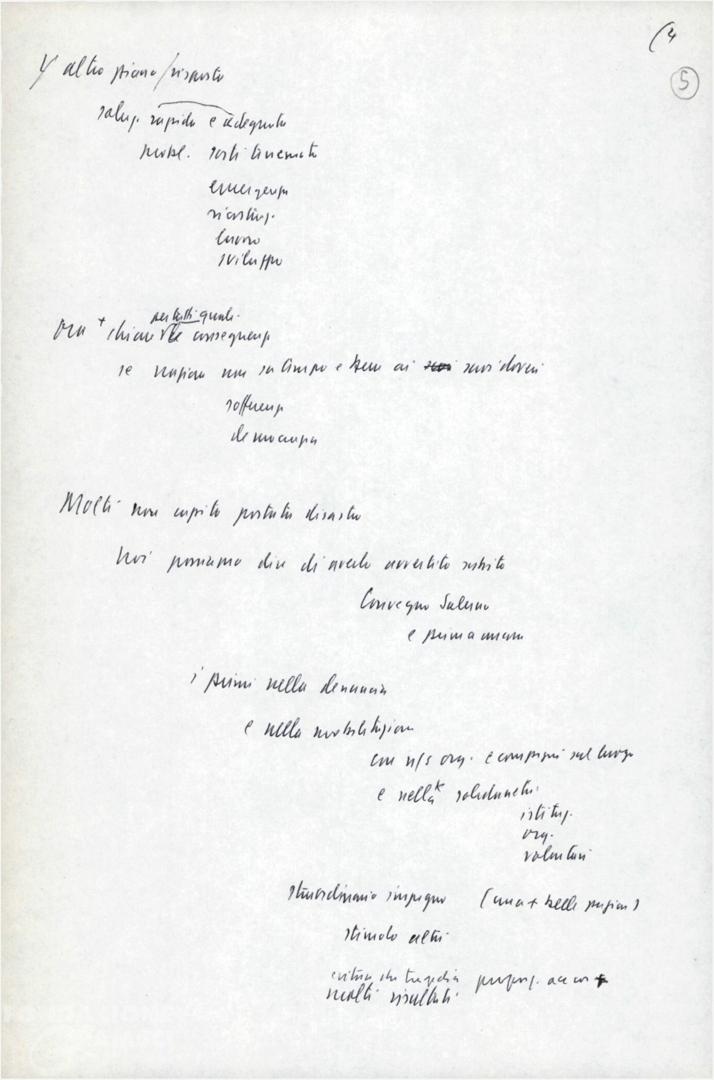 (4
5
altro piano/risposta
soluz. rapida e adeguata
probl. terremoto
emergenza
lavoro
sviluppo
per tutti quali
Ora + chiare conseguenze
se non ai suoi doveri
sofferenza
democrazia
Molti non capito portata disastro
Noi possiamo dire di averlo avvertito subito
Convegno Salerno
e prima ancora
i primi nella denuncia
e nella mobilitazione
con n/s org. e compagni sul luogo
e nella solidarietà
istituz.
org.
volontari
straordinario impegno (una + belle pagine)
stimolo altri
che tragedia
molti risultati